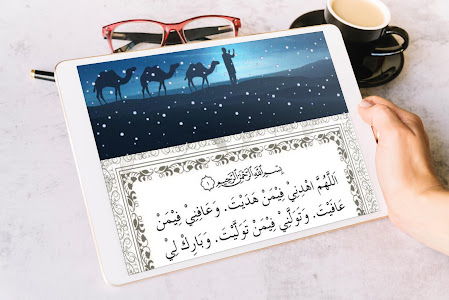 بِسْمِ اللَّهِ الرَّحْمَنِ الرَّحِيمِ ١
اَللّٰهُمَّ اهْدِنِيْ فِيْمَنْ هَدَيْتَ. وَعَافِنِيْ فِيْمَنْ
عَافَيْتَ. وَتَوَلَّنِيْ فِيْمَنْ تَوَلَّيْتَ. وَبَارِكْ لِيْ